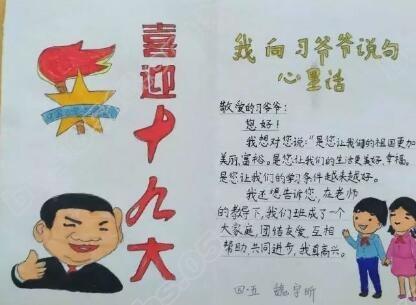 喜迎十九大
我向习爷爷说句
心里话
敬爱的习爷爷:
您好!
我想对您说:"是您让我们的祖国更加
美丽,富裕。是您让我们的生活更美好,幸福。
是您让我们的学习条件越来越好。
我还想告诉您,在老师
的教导下,我们班成了一个
大家庭,团结友爱,互相
帮助,共同进步,我真高兴。
四·五